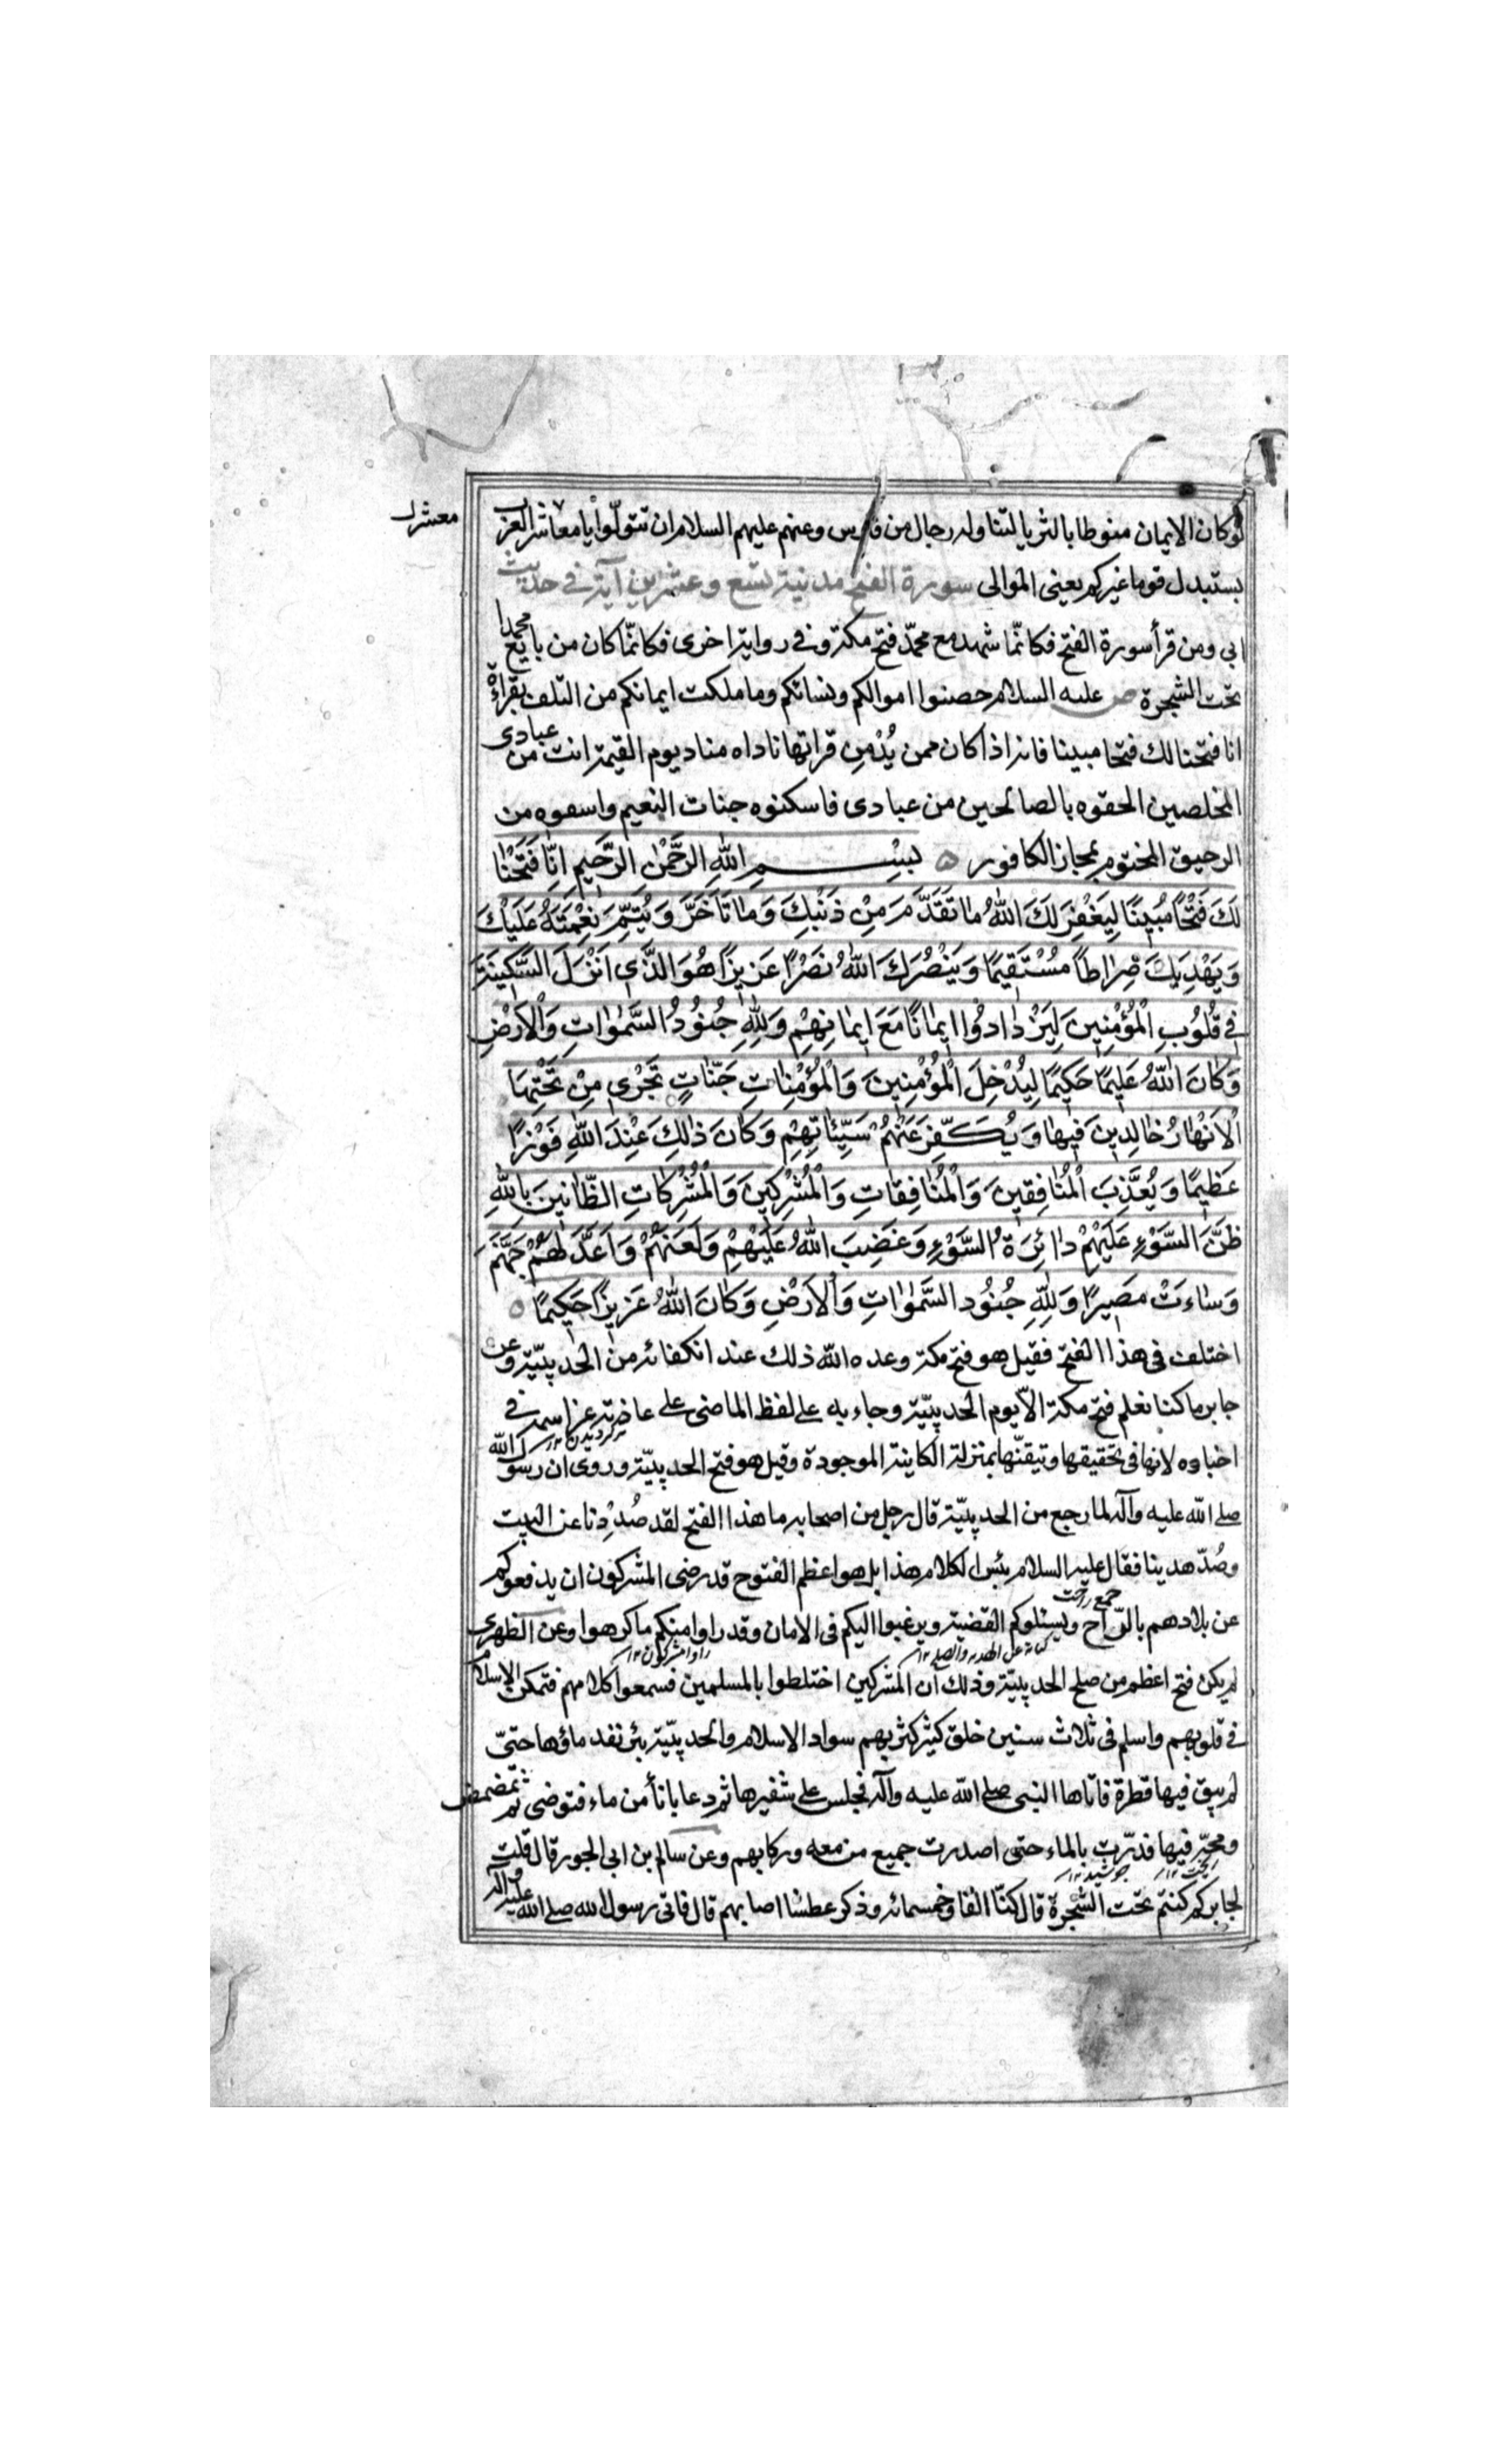 لو كان الايمان منوطا بالثريا لتناوله رجال من فارس وعنهم عليهم السلام ان تتولّوا يا معاشر العرب
معشر
يستبدل قوما غيركم يعنى الموالى سورة الفتح مدنية تسع وعشرين آية فى حديث
ابى ومن قرأ سورة الفتح فكانّما شهد مع محمّد فتح مكة وفى رواية اخرى فكانّما كان من بايع محمدا
تحت الشجرة ص عليه السلام حصنوا اموالكم ونسائكم وما ملكت ايمانكم من التلف بقراءة
انا فتحنا لك فتحا مبينا فانه اذا كان ممن يُدْمِن قراتها ناداه مناد يوم القيمة انت من عبادى
المخلصين الحقوه بالصالحين من عبادى فاسكنوه جنات النعيم واسقوه من
الرحيق المختوم بمجاز الكافور ٥ بِسْمِ اللّٰهِ الرَّحْمٰنِ الرَّحِيمِ اِنَّا فَتَحْنٰا
لَكَ فَتْحًا مُبِينًا لِيَغْفِرَ لَكَ اللّٰهُ مٰا تَقَدَّمَ مِنْ ذَنْبِكَ وَمٰا تَأَخَّرَ وَيُتِمَّ نِعْمَتَهُ عَلَيْكَ
وَيَهْدِيَكَ صِرٰاطًا مُسْتَقِيمًا وَيَنْصُرَكَ اللّٰهُ نَصْرًا عَزِيزًا هُوَ الَّذِى اَنْزَلَ السَّكِينَةَ
فِى قُلُوبِ الْمُؤْمِنِينَ لِيَزْدٰادُوا اِيمٰانًا مَعَ اِيمٰانِهِمْ وَلِلّٰهِ جُنُودُ السَّمٰوٰاتِ وَالْاَرْضِ
وَكٰانَ اللّٰهُ عَلِيمًا حَكِيمًا لِيُدْخِلَ الْمُؤْمِنِينَ وَالْمُؤْمِنٰاتِ جَنّٰاتٍ تَجْرِى مِنْ تَحْتِهَا
الْاَنْهٰارُ خٰالِدِينَ فِيهٰا وَيُكَفِّرَ عَنْهُمْ سَيِّئٰاتِهِمْ وَكٰانَ ذٰلِكَ عِنْدَ اللّٰهِ فَوْزًا
عَظِيمًا وَيُعَذِّبَ الْمُنٰافِقِينَ وَالْمُنٰافِقٰاتِ وَالْمُشْرِكِينَ وَالْمُشْرِكٰاتِ الظّٰانِّينَ بِاللّٰهِ
ظَنَّ السَّوْءِ عَلَيْهِمْ دٰائِرَةُ السَّوْءِ وَغَضِبَ اللّٰهُ عَلَيْهِمْ وَلَعَنَهُمْ وَاَعَدَّ لَهُمْ جَهَنَّمَ
وَسٰاءَتْ مَصِيرًا وَلِلّٰهِ جُنُودُ السَّمٰوٰاتِ وَالْاَرْضِ وَكٰانَ اللّٰهُ عَزِيزًا حَكِيمًا ٥
اختلف فى هذا الفتح فقيل هو فتح مكة وعده اللّه ذلك عند انكفائه من الحديبيّة وعن
جابر ما كنا نعلم فتح مكة الّا يوم الحديبيّة وجاء به على لفظ الماضى على عادته عز اسمه فى
اخباره لانها فى تحقيقها وتيقّنها بمنزلة الكاينة الموجودة وقيل هو فتح الحديبيّة وروى ان رسول اللّه
صلى اللّه عليه وآله لما رجع من الحديبيّة قال رجل من اصحابه ما هذا الفتح لقد صُدِدْنا عن البيت
وصُدّ هدينا فقال عليه السلام بئس الكلام هذا بل هو اعظم الفتوح قد رضى المشركون ان يدفعوكم
جمع راحت
عن بلادهم بالرّاح ويسئلوكم القضية ويرغبوا اليكم فى الامان وقد راوا منكم ما كرهوا وعن الظهرى
لم يكن فتح اعظم من صلح الحديبيّة وذلك ان المشركين اختلطوا بالمسلمين فسمعوا كلامهم فتمكن الاسلام
فى قلوبهم واسلم فى ثلاث سنين خلق كثير كثر بهم سواد الاسلام والحديبيّة بئر نفد ماؤها حتىّ
لم يبق فيها قطرة فاتاها النبى صلى اللّه عليه وآله فجلس على شفيرها ثم دعا باناء من ماء فتوضى ثم تمضمض
ومجّه فيها فدرّت بالماء حتى اصدرت جميع من معه وركابهم وعن سالم بن ابى الجور قال قلت
لجابر كم كنتم تحت الشجرة قال كنّا الفا وخمسمائه وذكر عطشا اصابهم قال فاتى رسول اللّه صلى اللّه عليه وآله